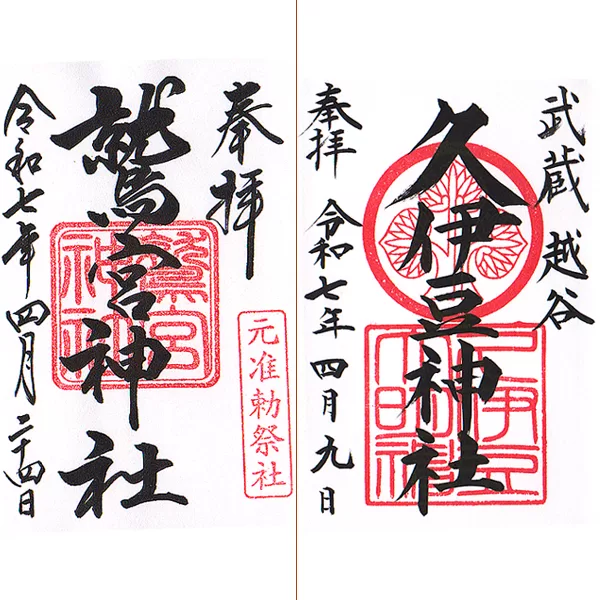 奉拝
鷲宮神社
鷲宮神社
元准勅祭社
令和七年四月二十四日
武蔵越谷
久伊豆神社
奉拝 令和七年四月九日